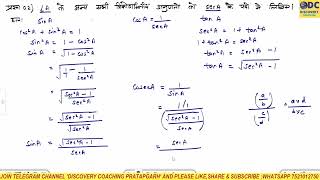 प्रश्न 02) ∠A के अन्य सभी त्रिकोणमितीय अनुपातों को sec A के पदों में लिखिए।
हल: sin A
cos²A + sin²A = 1
sin²A = 1 - cos²A
= √(1 - 1/sec²A)
= √((sec²A - 1)/sec²A)
sin A = √(sec²A - 1)/sec A
cos A = 1/sec A
cosec A = 1/sin A
= (1/1)/(√(sec²A - 1)/sec A)
= sec A
tan A
sec²A = 1 + tan²A
1 + tan²A = sec²A
tan²A = sec²A - 1
tan A = √(sec²A - 1)
(a/b)/(c/d) = a×d/b×c
DC
DISCOVERY COACHING
JOIN TELEGRAM CHANNEL 'DISCOVERY COACHING PRATAPGARH' AND PLEASE LIKE,SHARE & SUBSCRIBE |WHATSAPP 7521012750